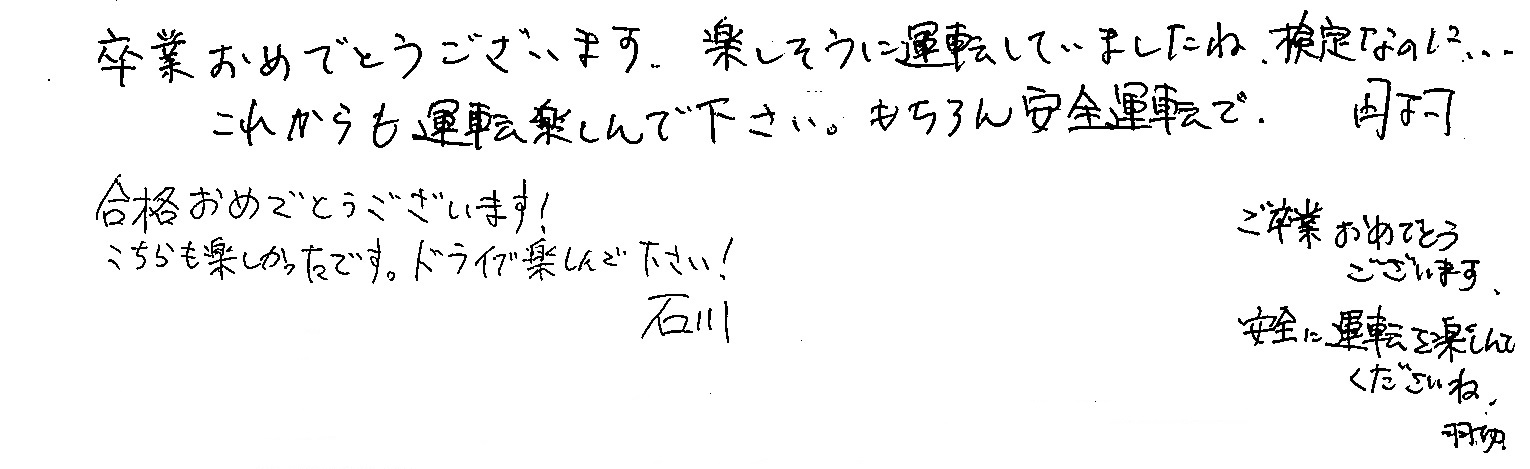 卒業おめでとうございます。楽しそうに運転していましたね、検定なのに…
これからも運転楽しんで下さい。もちろん安全運転で.
合格おめでとうございます!
こちらも楽しかったです。ドライブ楽しんで下さい!
石川
ご卒業おめでとう
ございます、
安全に運転を楽しんで
くださいね、